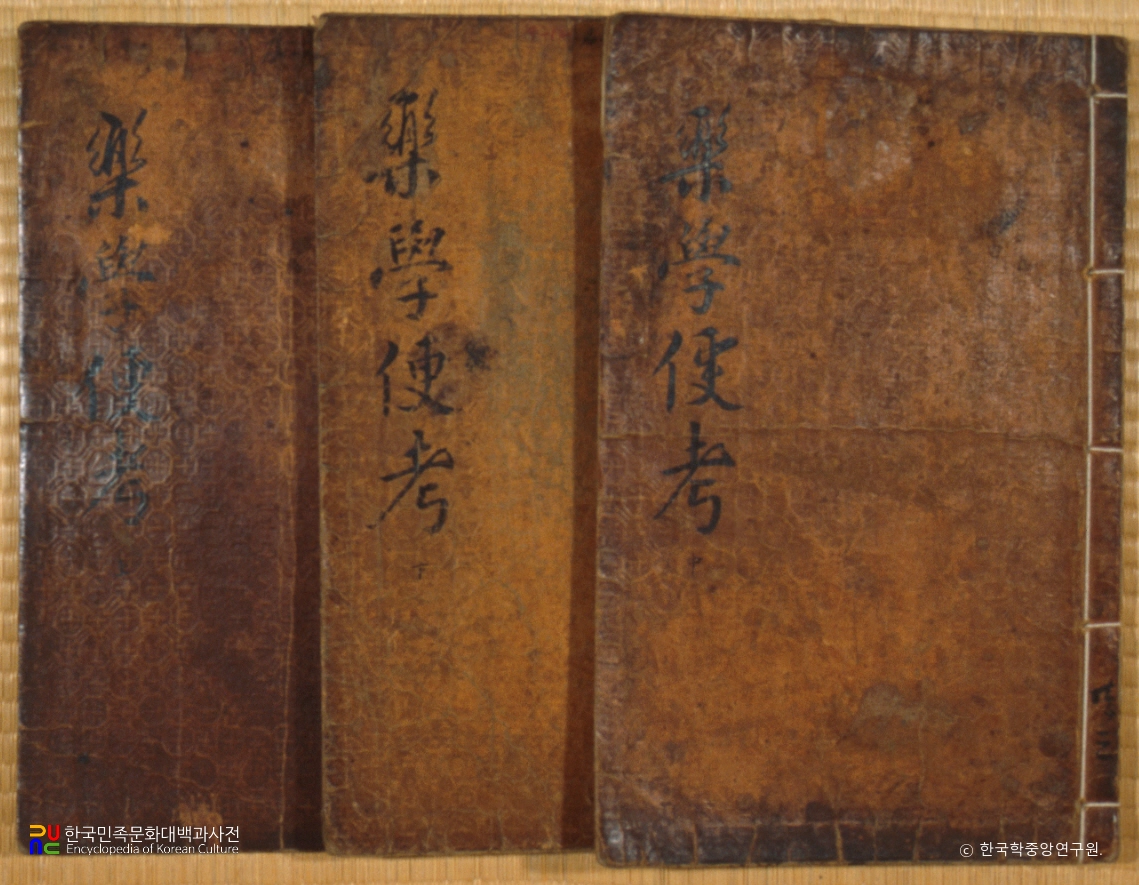 樂學便考
中
樂學便考
下
樂學便考
한국민족문화대백과사전
Encyclopedia of Korean Culture
© 한국학중앙연구원.